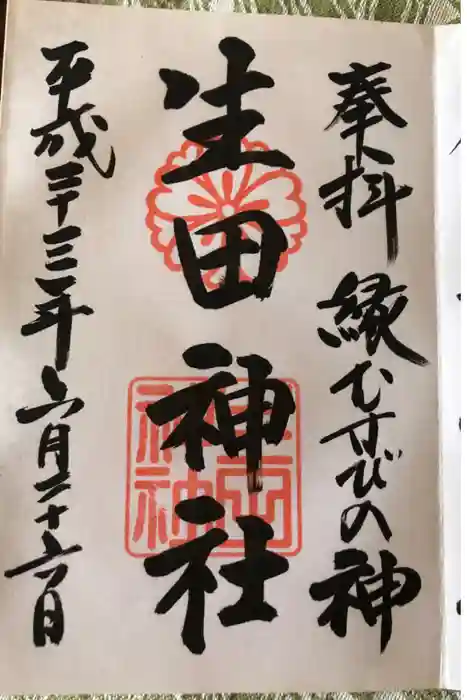 奉拝 縁むすびの神
生田神社
平成三十三年六月二十六日